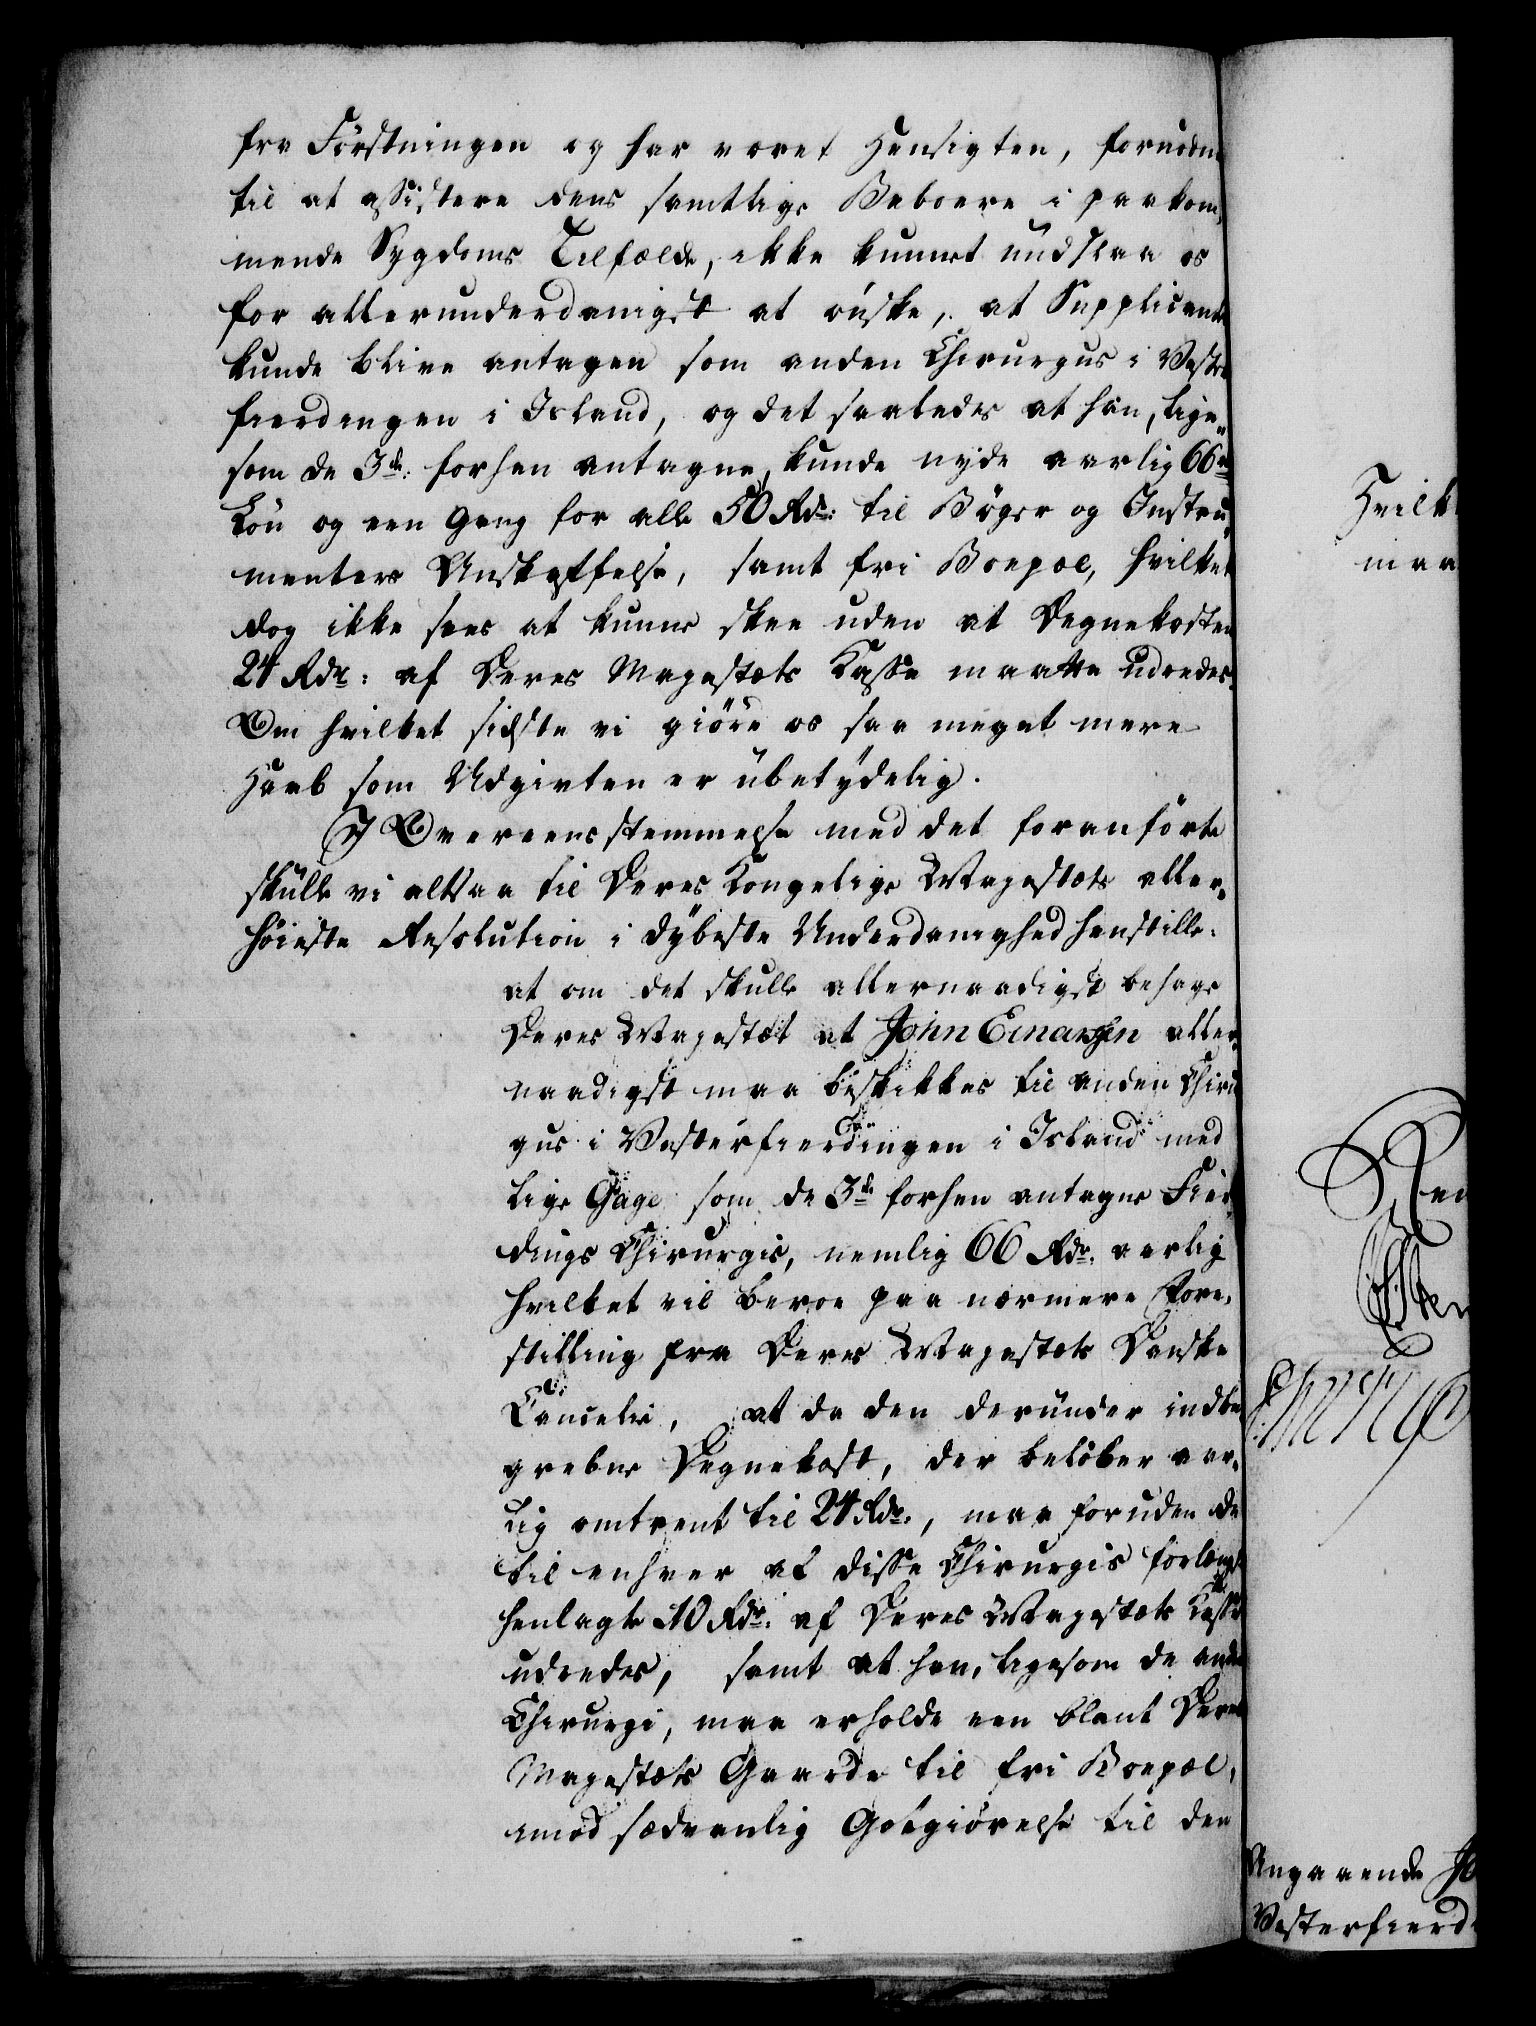 fra Förstningen og har været Hensigten, fornöden
til at assistere dens samtlige Beboere i paakom,
mende Sygdoms Tilfælde, ikke kunnet undslaa os
for allerunderdanigst at önske, at Supplicanten
kunde blive antagen som anden Chirurgus i Vester
fierdingen i Island, og det saaledes at han, lige„
som de 3de: forhen antagne, kunde nyde aarlig 66 rd
Lön og een Gang for alle 50 Rdr: til Böger og Instru„
menters Anskaffelse, samt fri Boepæl, hvilket
dog ikke sees at kunne skee uden at Degnekosten
24 Rdr: af Deres Majestæts Kasse maatte udredes.
Om hvilket sidste vi giöre os saa meget mere
Haab som Udgivten er ubetydelig.
I Overeensstemmelse med det foranförte
skulle vi altsaa til Deres Kongelige Majestæts aller„
höieste Resolution i dybeste Underdanighed henstille:
at om det skulle allernaadigst behage
Deres Majestæt at John Einarsen aller„
naadigst maa beskikkes til anden Chirur
gus i Vesterfierdingen i Island med
lige Gage som de 3de forhen antagne Fier„
dings Chirurgis, nemlig 66 Rdr. aarlig
hvilket vil beroe paa nærmere Fore„
stilling fra Deres Majestæts Danske
Cancelie, at da den derunder indbe
grebne Degnekost, der belöber aar„
lig omtrent til 24 Rdr., maa foruden de
til enhver af disse Chirurgis forlængst
henlagte 10 Rdr. af Deres Majestæts Kasse
udredes, samt at han, ligesom de andre
Chirurgi, maa erholde een blant Deres
Majestæts Gaarde til fri Boepæl,
imod sædvanlig Godtgiörelse til den
Hvilk
maa
Angaaende Jo
Vesterfierd